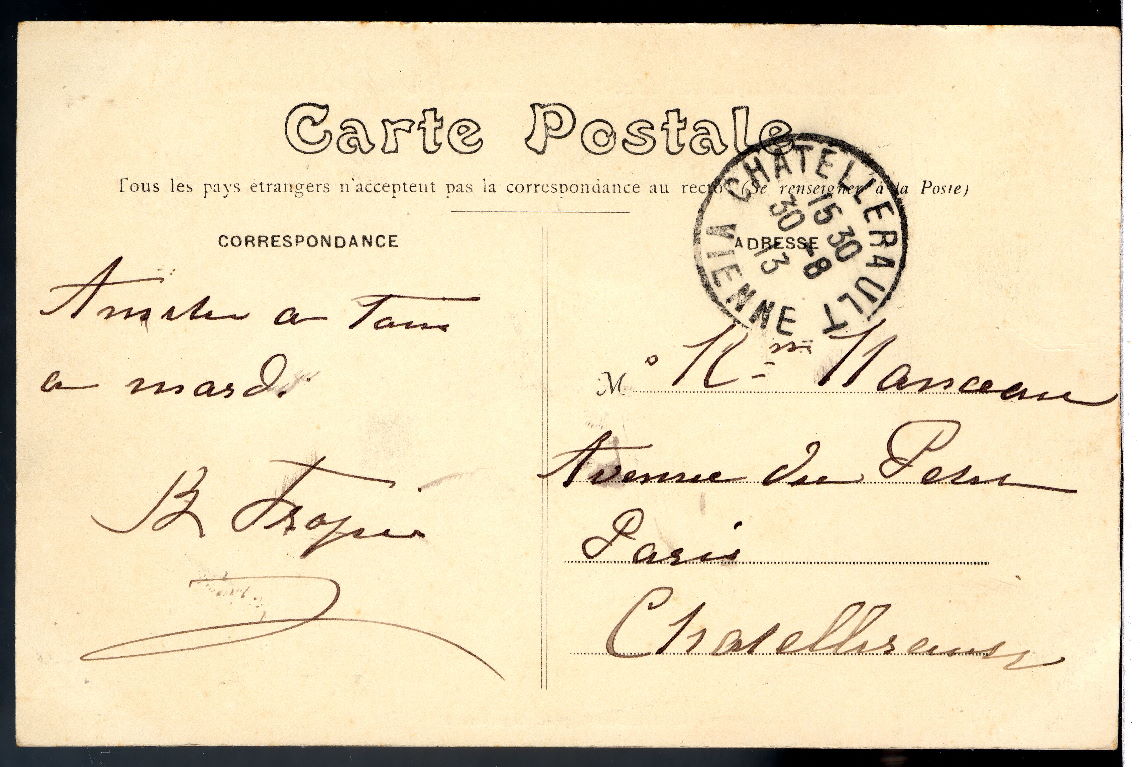 Carte Postale
Tous les pays étrangers n'acceptent pas la correspondance au recto (Se renseigner à la Poste)
CHATELLERAULT
15 30
30 -8
13
VIENNE
CORRESPONDANCE
ADRESSE
Amitiés a Tous
a mardi
M
Manceau
B Tropée
Avenue du Petit
Paris
Chatellerault